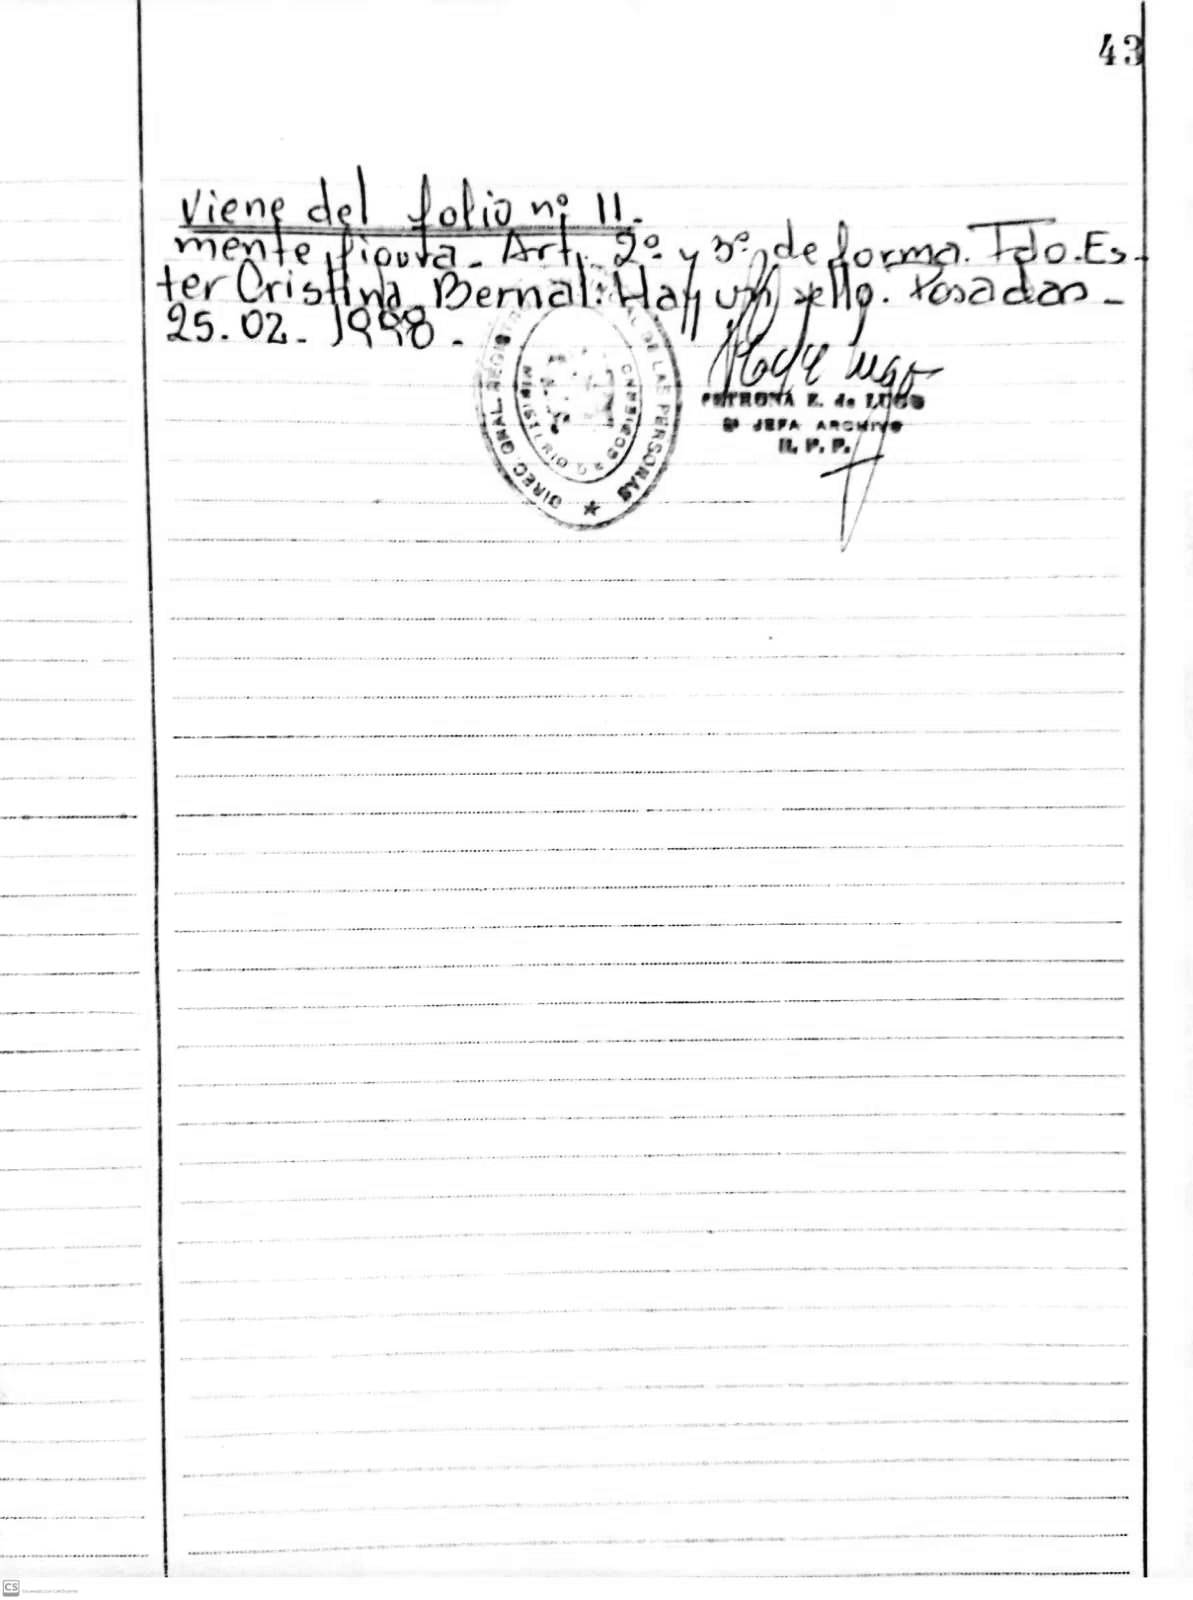 43
Viene del folio nº 11.
mente figura. Art. 2º y 3º de forma. Fdo. Es-
ter Cristina Bernal. Hay un sello. Posadas -
25.02.1998.
DIREC. GRAL. REGISTRO DE LAS PERSONAS
MINISTERIO
PETRONA E. de LUGO
2º JEFA ARCHIVO
R. P. P.
CS